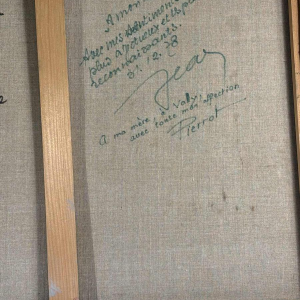 A mon
Avec mes sentiments
plus
reconnaissants.
12.78
Jean
A ma mère, à Valy,
avec toute mon affection
Pierrot
2